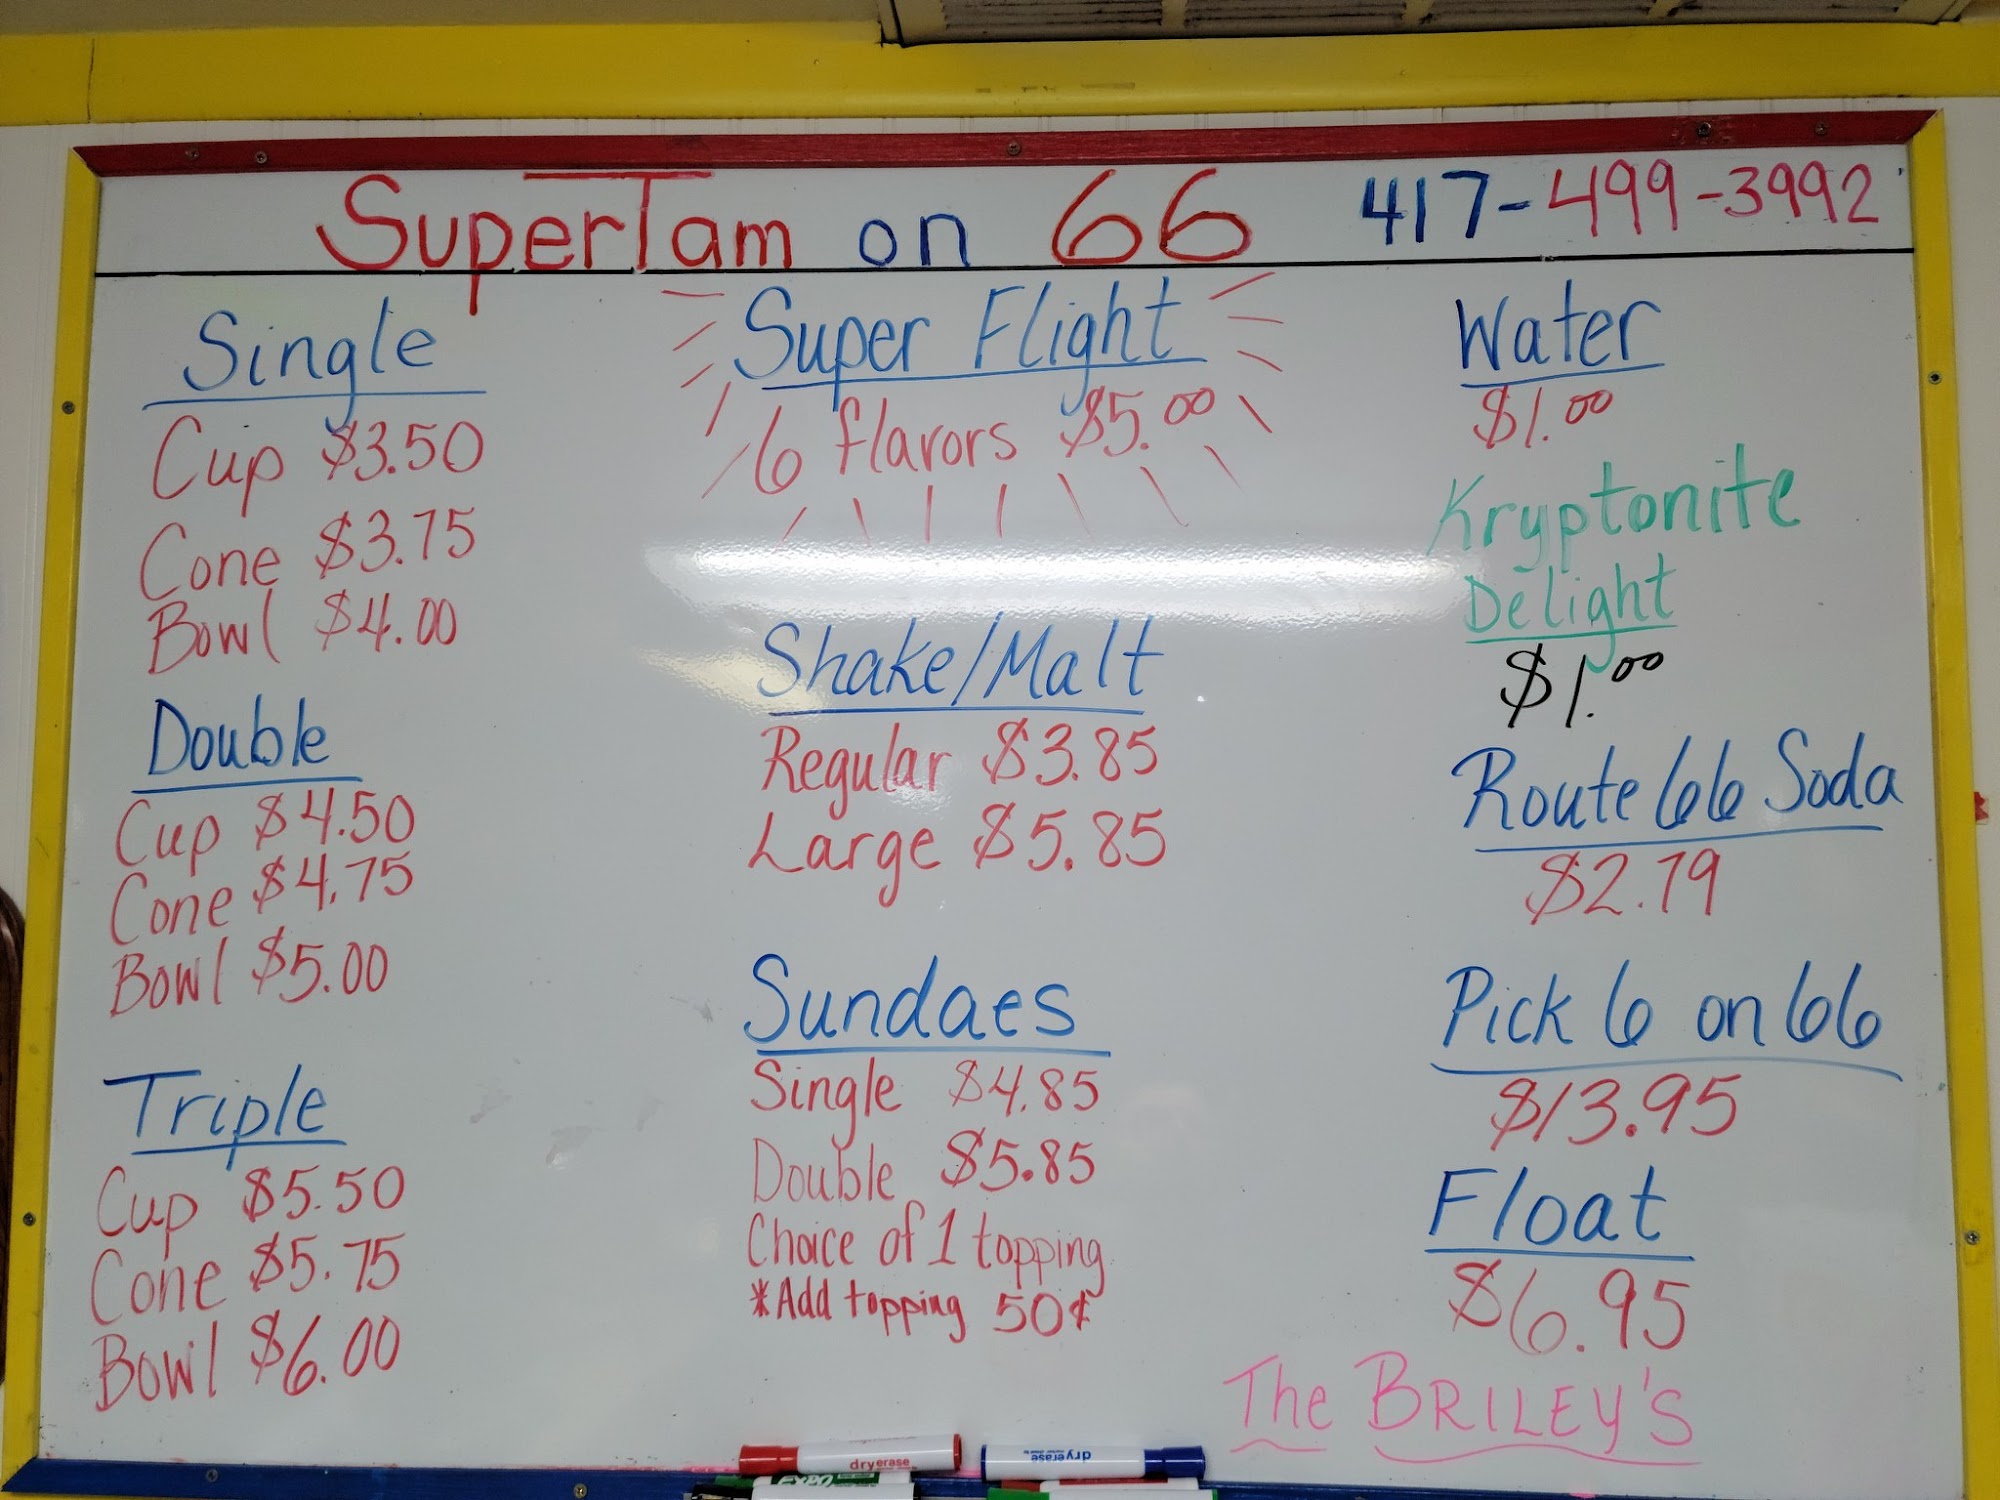 SuperTam on 66 417-499-3992
Single
Cup $3.50
Cone $3.75
Bowl $4.00
Double
Cup $4.50
Cone $4.75
Bowl $5.00
Triple
Cup $5.50
Cone $5.75
Bowl $6.00
Super Flight
6 flavors $5.00
Shake/Malt
Regular $3.85
Large $5.85
Sundaes
Single $4.85
Double $5.85
Choice of 1 topping
*Add topping 50¢
Water
$1.00
Kryptonite
Delight
$1.00
Route 66 Soda
$2.79
Pick 6 on 66
$13.95
Float
$6.95
The BRILEY'S
dryerase
dryerase
EXPO